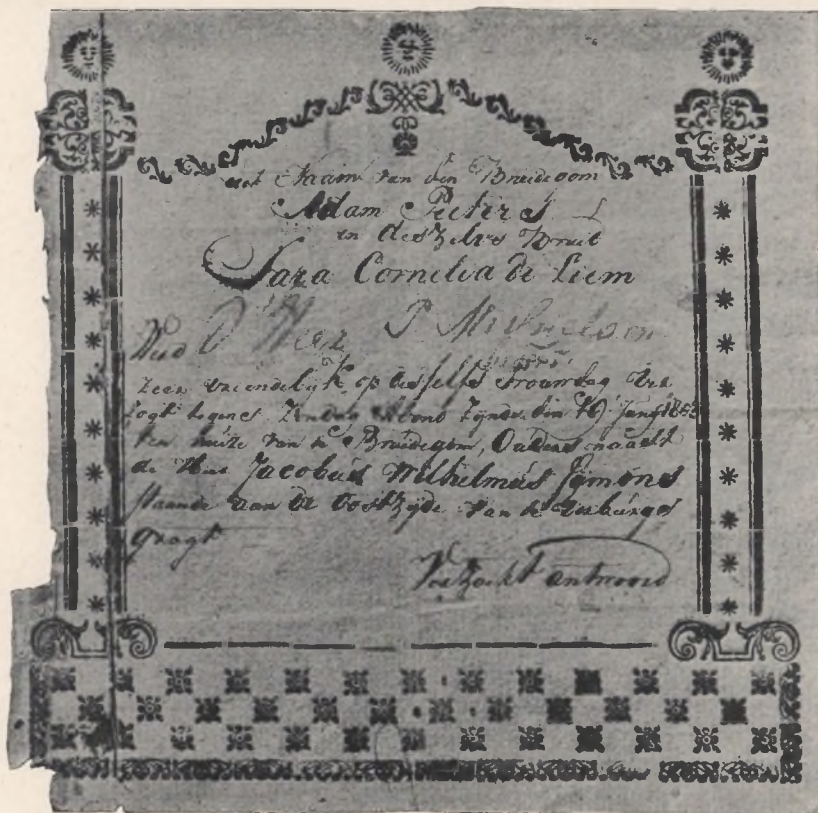 uit Naam van den Bruidegom
Adam Pieters
en deszelvs Bruit
Sara Cornelia de Liem
Werd D'Heer P
zeer vriendelyk op des selfs trouwdag ver
zogt tegens Zondag Avond Zynde, den 19
ten huize van de Bruidegom, Ouders, naast
de Heer Jacobus Wilhelmus Symons
staande aan de Oostzyde van de
gragt
Verzoekt antwoord